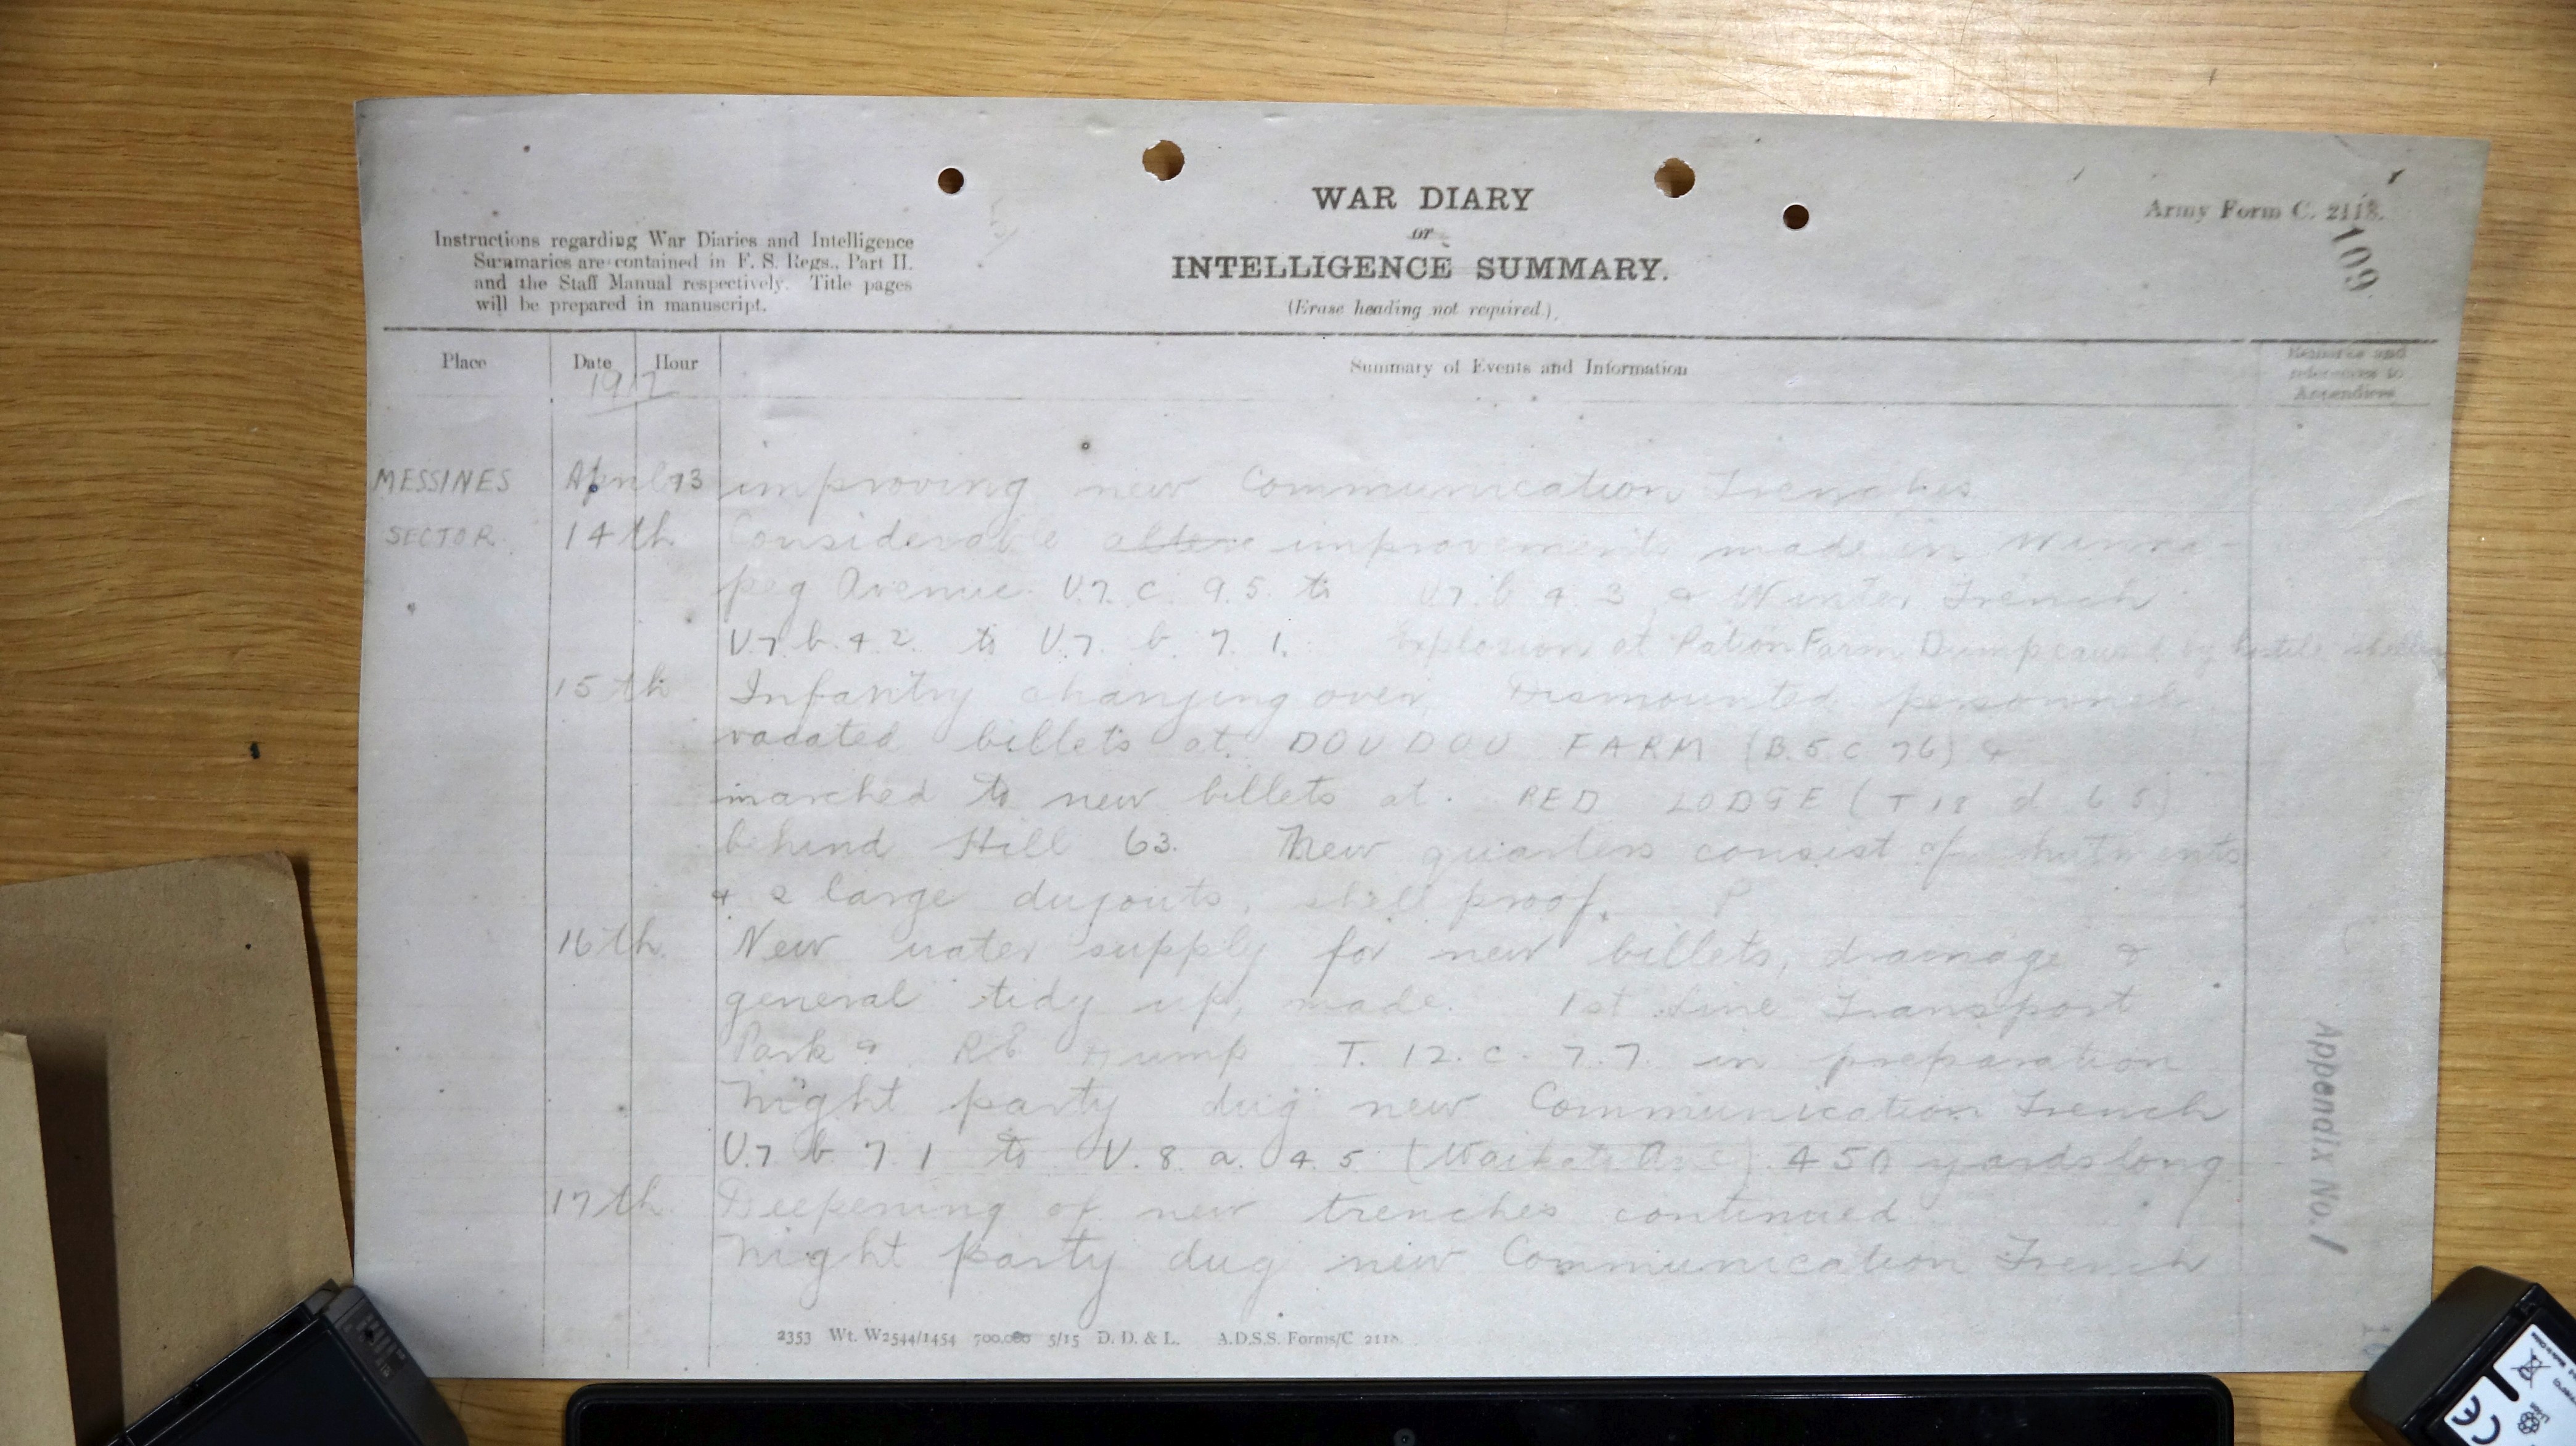 WAR DIARY
or
INTELLIGENCE SUMMARY.
(Erase heading not required.)
Army Form C. 2118.
109
Instructions regarding War Diaries and Intelligence
Summaries are contained in F. S. Regs., Part II.
and the Staff Manual respectively. Title pages
will be prepared in manuscript.
Place Date Hour Summary of Events and Information Remarks and
references to
Appendices
1917
MESSINES April 13 improving new Communication Trenches
SECTOR. 14th Considerable improvements made in Winna-
peg Avenue V.7. c. 9.5. to V7. b 4. 3 & Winter Trench
V.7. b. 4. 2. to V.7. b. 7. 1. Explosion at Ration Farm Dump caused by hostile
15th Infantry changing over. Dismounted personnel
vacated billets at DOUDOU FARM (B.5 c 76) &
marched to new billets at. RED LODGE (T 18 d 6 5)
behind Hill 63. New quarters consist of hutments
& 2 large dugouts, shell proof.
16th New water supply for new billets, drainage &
general tidy up, made. 1st Line Transport
Park & RE Dump T. 12. c. 7.7. in preparation
Night party dug new Communication Trench
V.7 b 7 1 to V. 8 a. 4. 5 (Waikato Ave) 450 yards long
17th Deepening of new trenches continued.
Night party dug new Communication Trench
Appendix No. 1
2353 Wt. W2544/1454 700,000 5/15 D. D. & L. A.D.S.S. Forms/C 2118.